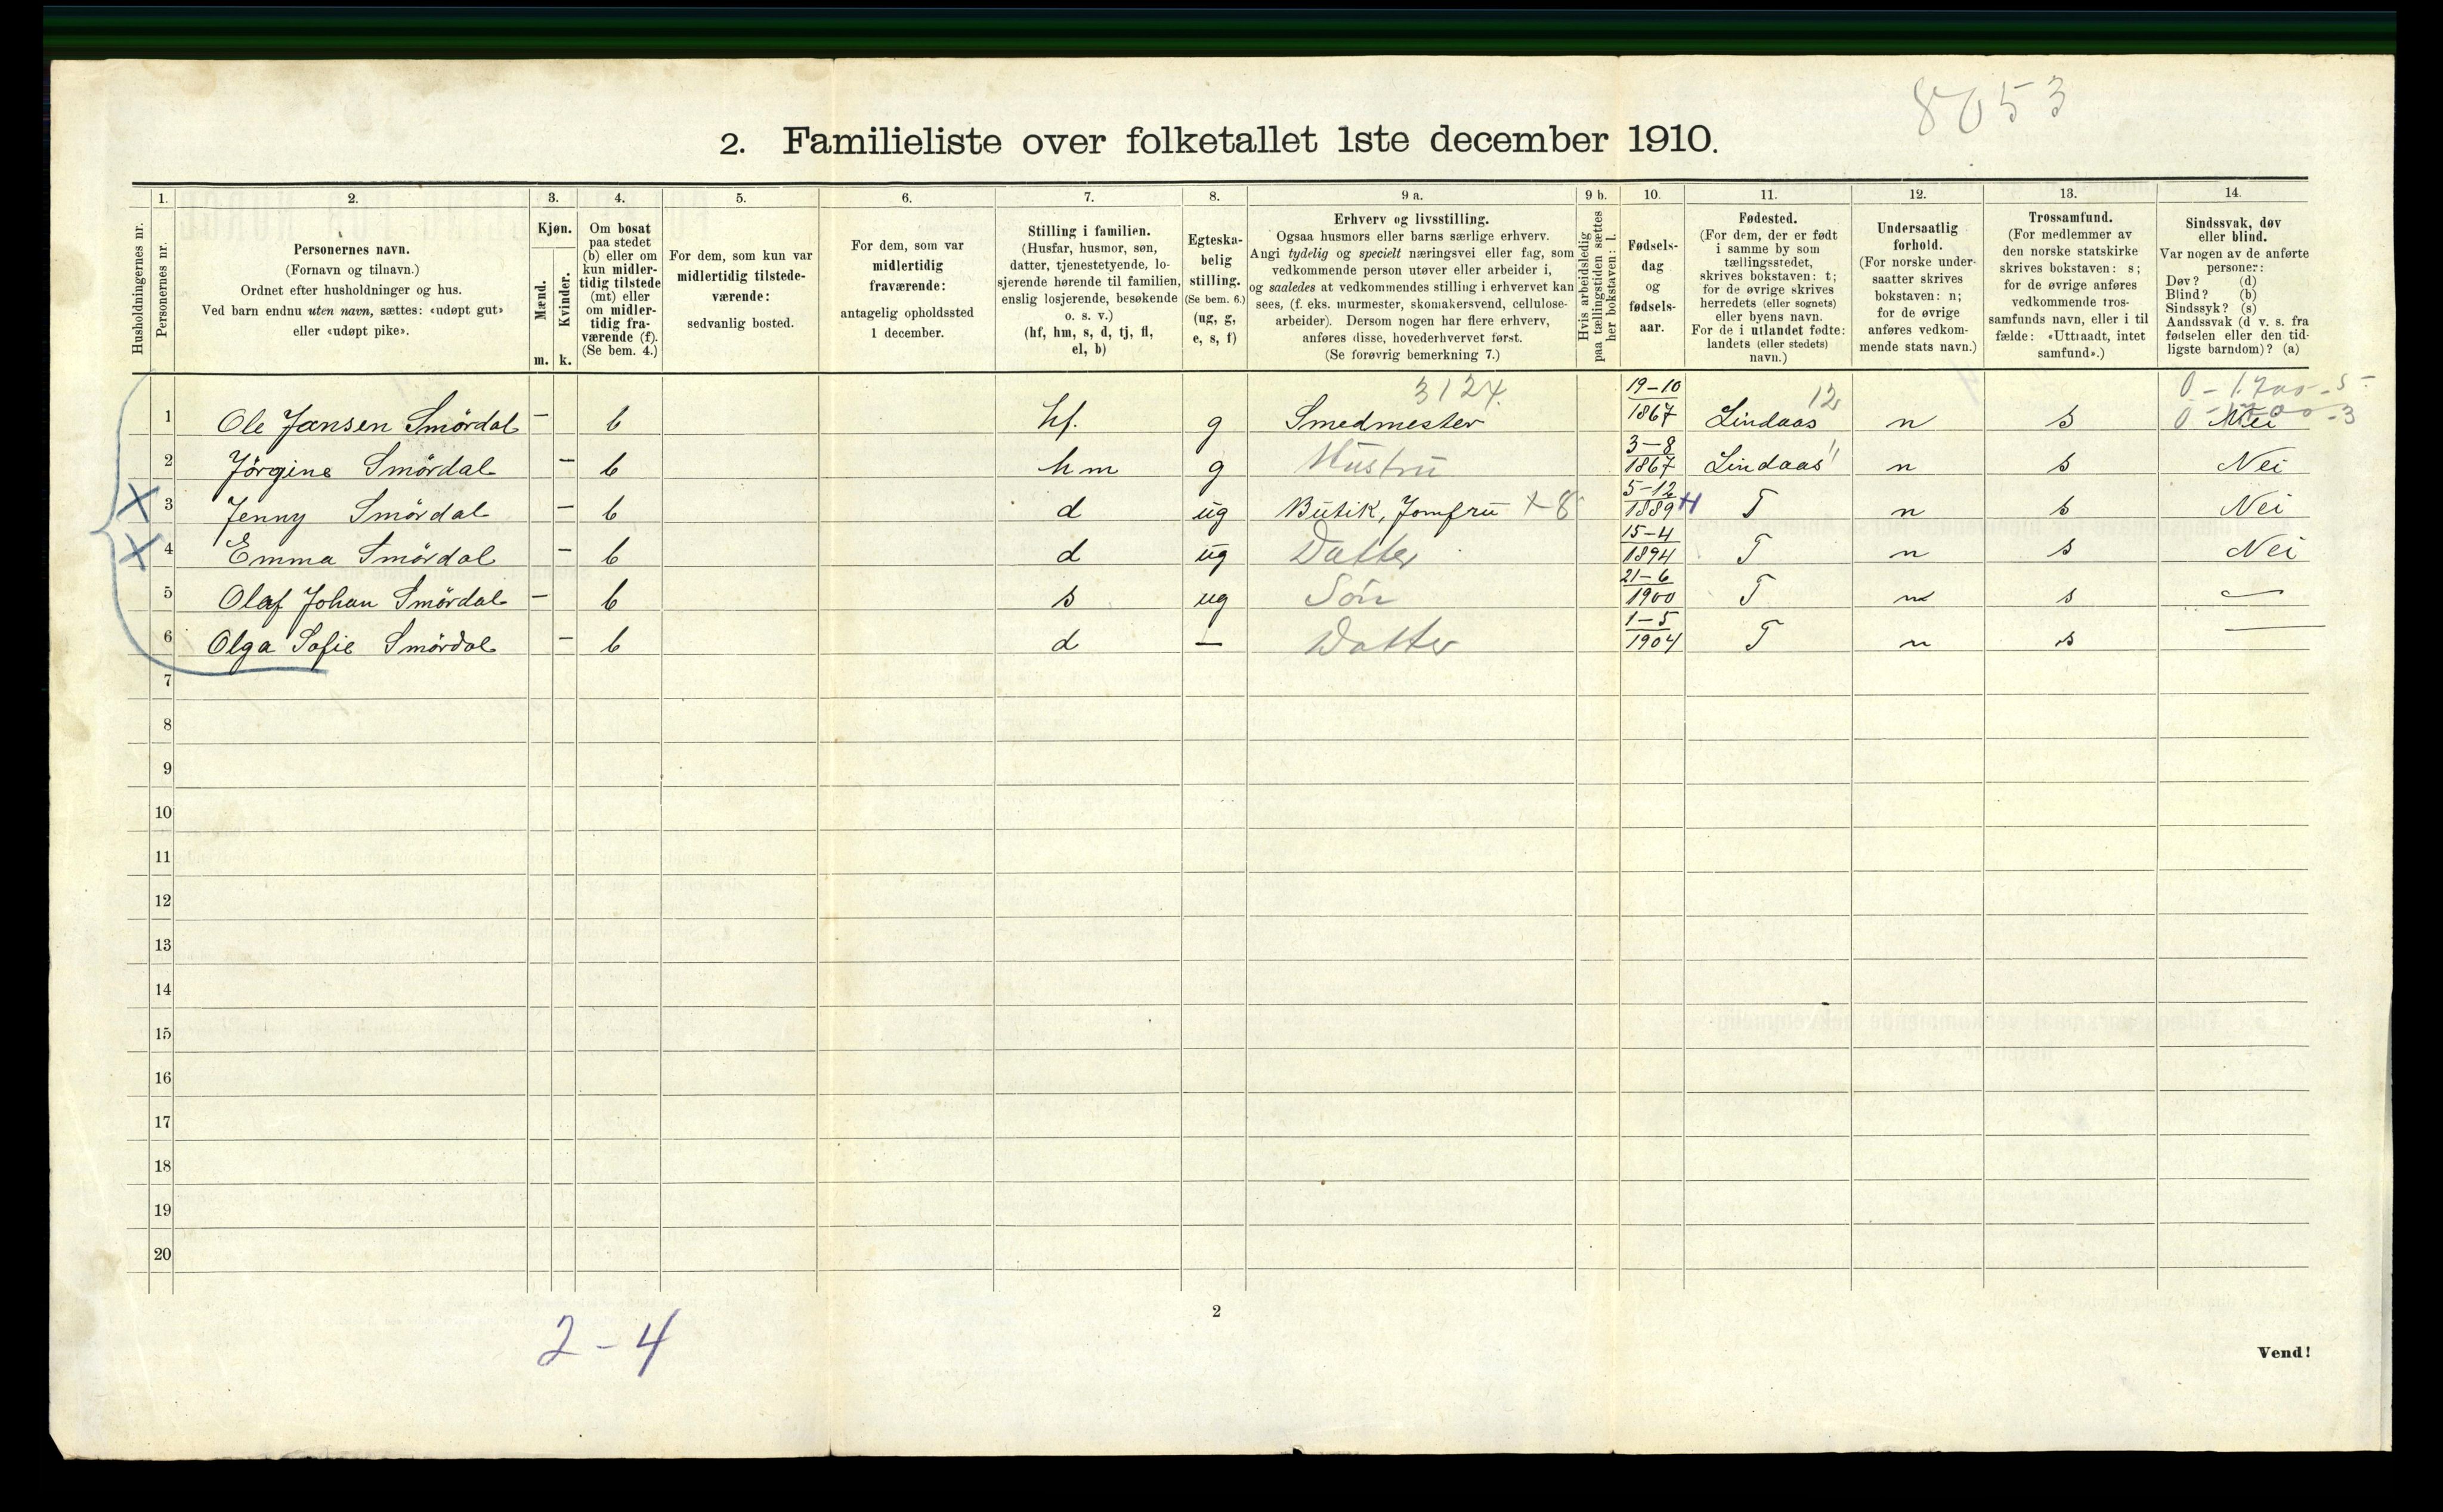 8053
2. Familieliste over folketallet 1ste december 1910.
Husholdningernes nr.
1.
Personernes nr.
2.
Personernes navn.
(Fornavn og tilnavn.)
Ordnet efter husholdninger og hus.
Ved barn endnu uten navn, sættes: «udøpt gut»
eller «udøpt pike».
3.
Kjøn.
Mænd.
m.
Kvinder.
k.
4.
Om bosat
paa stedet
(b) eller om
kun midler-
tidig tilstede
(mt) eller
om midler-
tidig fra-
værende (f).
(Se bem. 4.)
5.
For dem, som kun var
midlertidig tilstede-
værende:
sedvanlig bosted.
6.
For dem, som var
midlertidig
fraværende:
antagelig opholdssted
1 december.
7.
Stilling i familien.
(Husfar, husmor, søn,
datter, tjenestetyende, lo-
sjerende hørende til familien,
enslig losjerende, besøkende
o. s. v.)
(hf, hm, s, d, tj, fl,
el, b)
8.
Egteska-
belig
stilling.
(Se bem. 6.)
(ug, g,
e, s, f)
9 a.
Erhverv og livsstilling.
Ogsaa husmors eller barns særlige erhverv.
Angi tydelig og specielt næringsvei eller fag, som
vedkommende person utøver eller arbeider i,
og saaledes at vedkommendes stilling i erhvervet kan
sees, (f. eks. murmester, skomakersvend, cellulose-
arbeider). Dersom nogen har flere erhverv,
anføres disse, hovederhvervet først.
(Se forøvrig bemerkning 7.)
9 b.
Hvis arbeidsledig
paa tællingstiden sættes
her bokstaven: l.
10.
Fødsels-
dag
og
fødsels-
aar.
11.
Fødested.
(For dem, der er født
i samme by som
tællingsstedet,
skrives bokstaven: t;
for de øvrige skrives
herredets (eller sognets)
eller byens navn.
For de i utlandet fødte:
landets (eller stedets)
navn.)
12.
Undersaatlig
forhold.
(For norske under-
saatter skrives
bokstaven: n;
for de øvrige
anføres vedkom-
mende stats navn.)
13.
Trossamfund.
(For medlemmer av
den norske statskirke
skrives bokstaven: s;
for de øvrige anføres
vedkommende tros-
samfunds navn, eller i til
fælde: «Uttraadt, intet
samfund».)
14.
Sindssvak, døv
eller blind.
Var nogen av de anførte
personer:
Døv? (d)
Blind? (b)
Sindssyk? (s)
Aandssvak (d v. s. fra
fødselen eller den tid-
ligste barndom)? (a)
3124. 12 0 - 1700 - 5
1 Ole Jansen Smördal – b hf. g Smedmester 19–10 1867 Lindaas n s Nei
2 Jörgine Smördal – b hm g Hustru 3–8 1867 Lindaas " n s Nei
X 3 Jenny Smördal – b d ug Butik, Jomfru +8 5–12 1889 H T n s Nei
X 4 Emma Smördal – b d ug Datter 15–4 1894 T n s Nei
5 Olaf Johan Smördal – b s ug Sön 21–6 1900 T n s —
6 Olga Sofie Smördal – b d — Datter 1–5 1904 T n s —
7
8
9
10
11
12
13
14
15
16
17
18
19
20
2
2 – 4
Vend!